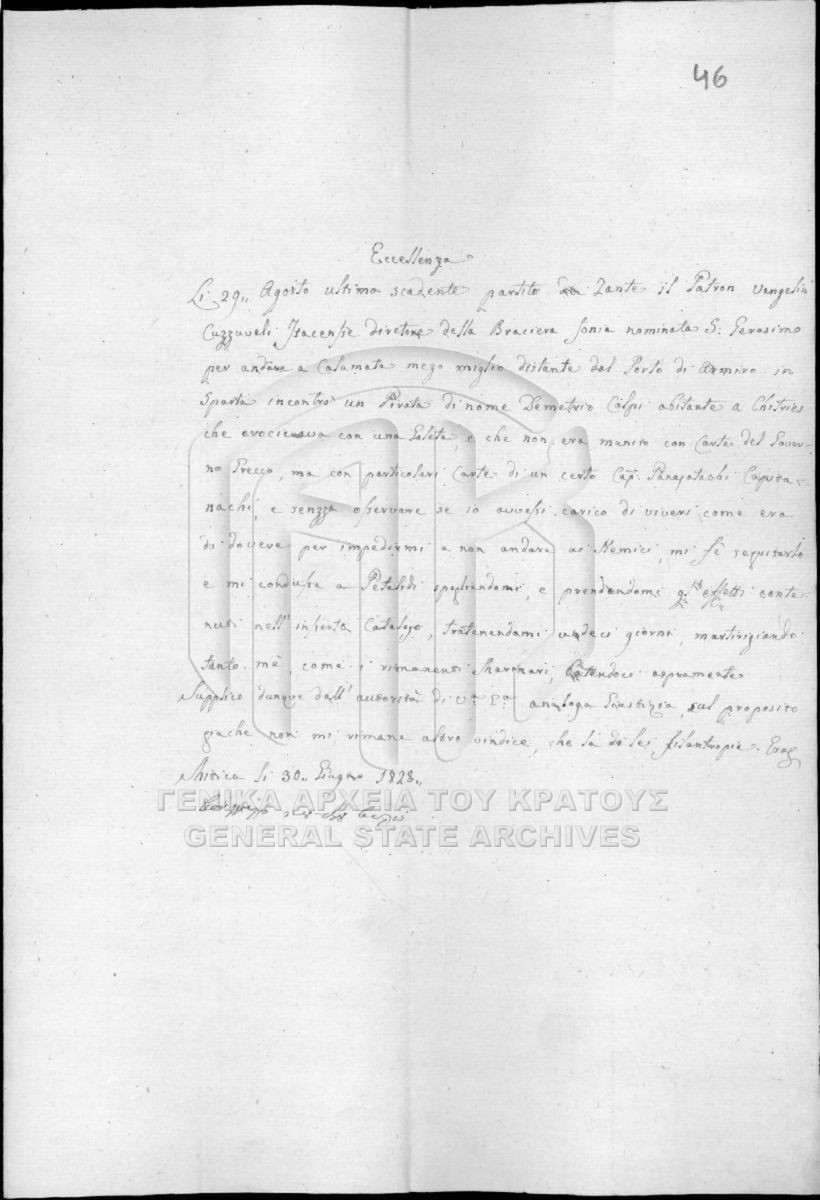 46
Eccellenza
Li 29,, Agosto ultimo scadente partito da Zante il Patron Vangelin
Cuzzuveli Itacense diretore della Braciera Jonia nominata S: Gerasimo
per andare a Calamata mezo miglio distante dal Porto di Armiro in
Sparta incontrò un Pirata di nome Demetrio Calpi abitante a Chitries
che crocierava con una Goleta, e che non era munito con Carte del Gover-
no Grecco, ma con particolari Carte di un certo Cap: Panajotachi
e senzza osservare se io avvessi carico di viveri come era
di dovere per impedirmi a non andare ai Nemici, mi fé seguitarlo
e mi condusse a Petalidi spogliandomi, e prendendomi effetti conte-
nuti nell' inserto Catalogo, tratenendomi undeci giorni, martirizando
tanto mè, come i rimanenti Marinari, battendoci aspramente
Supplico dunque dall' autorità di V:a E:a analoga Giustizia, sul proposito
giachè non mi rimane altro vindice, che la di lei filantropia.
li 30,, Giugno 1828,,
ΓΕΝΙΚΑ ΑΡΧΕΙΑ ΤΟΥ ΚΡΑΤΟΥΣ
GENERAL STATE ARCHIVES